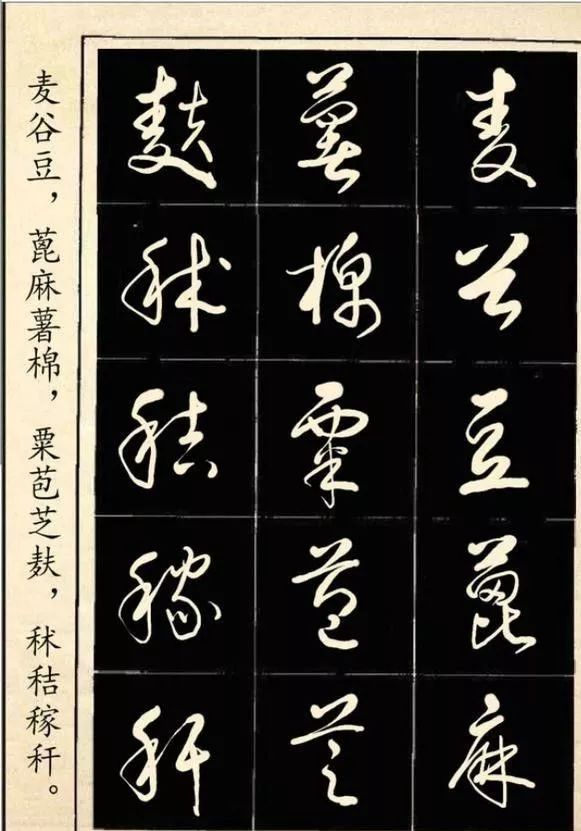 麦谷豆，蓖麻薯棉，粟苞芝麸，秫秸稼秆。
麦谷豆蓖麻
薯棉粟苞芝
麸秫秸稼秆